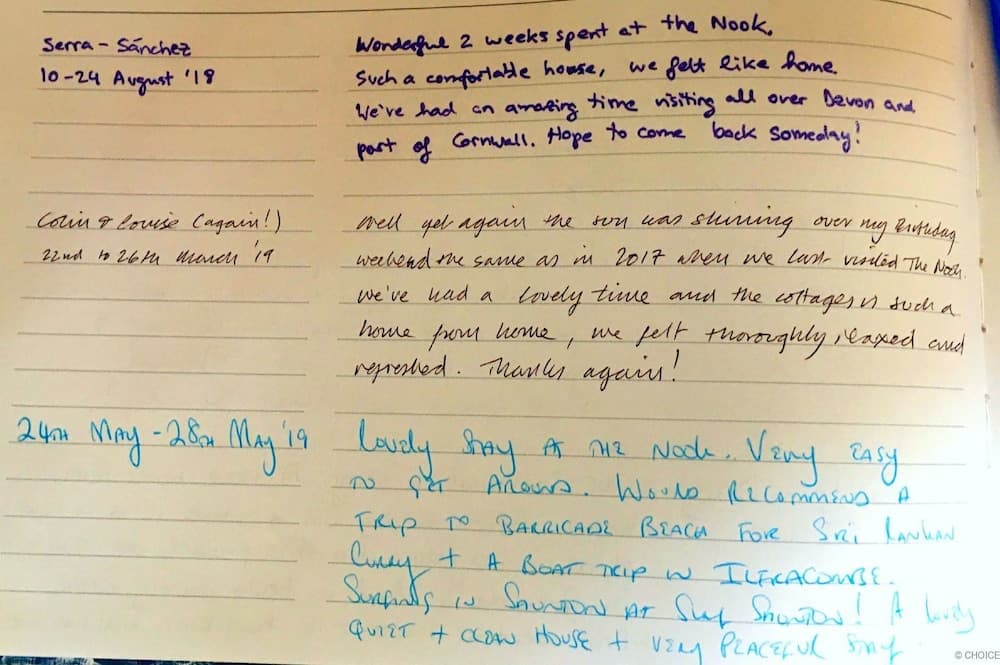 Serra - Sánchez
10-24 August '18
Wonderful 2 weeks spent at the Nook.
Such a comfortable house, we felt like home.
We've had an amazing time visiting all over Devon and
part of Cornwall. Hope to come back someday!
Colin & Louise (again!)
22nd to 26th March '19
Well yet again the sun was shining over my Birthday
weekend the same as in 2017 when we last visited The Nook.
We've had a lovely time and the cottages is such a
home from home, we felt thoroughly relaxed and
refreshed. Thanks again!
24TH MAY - 28TH MAY '19
Lovely Stay At THE Nook. Very EASY
TO GET AROUND. WOULD RECOMMEND A
TRIP TO BARRICADE BEACH FOR SRi LANKAN
Curry + A BOAT TRIP IN ILFRACOMBE.
SURFING IN SAUNTON AT Surf SAUNTON! A lovely
QUIET + CLEAN HOUSE + VERY PEACEFUL Stay
© CHOICE